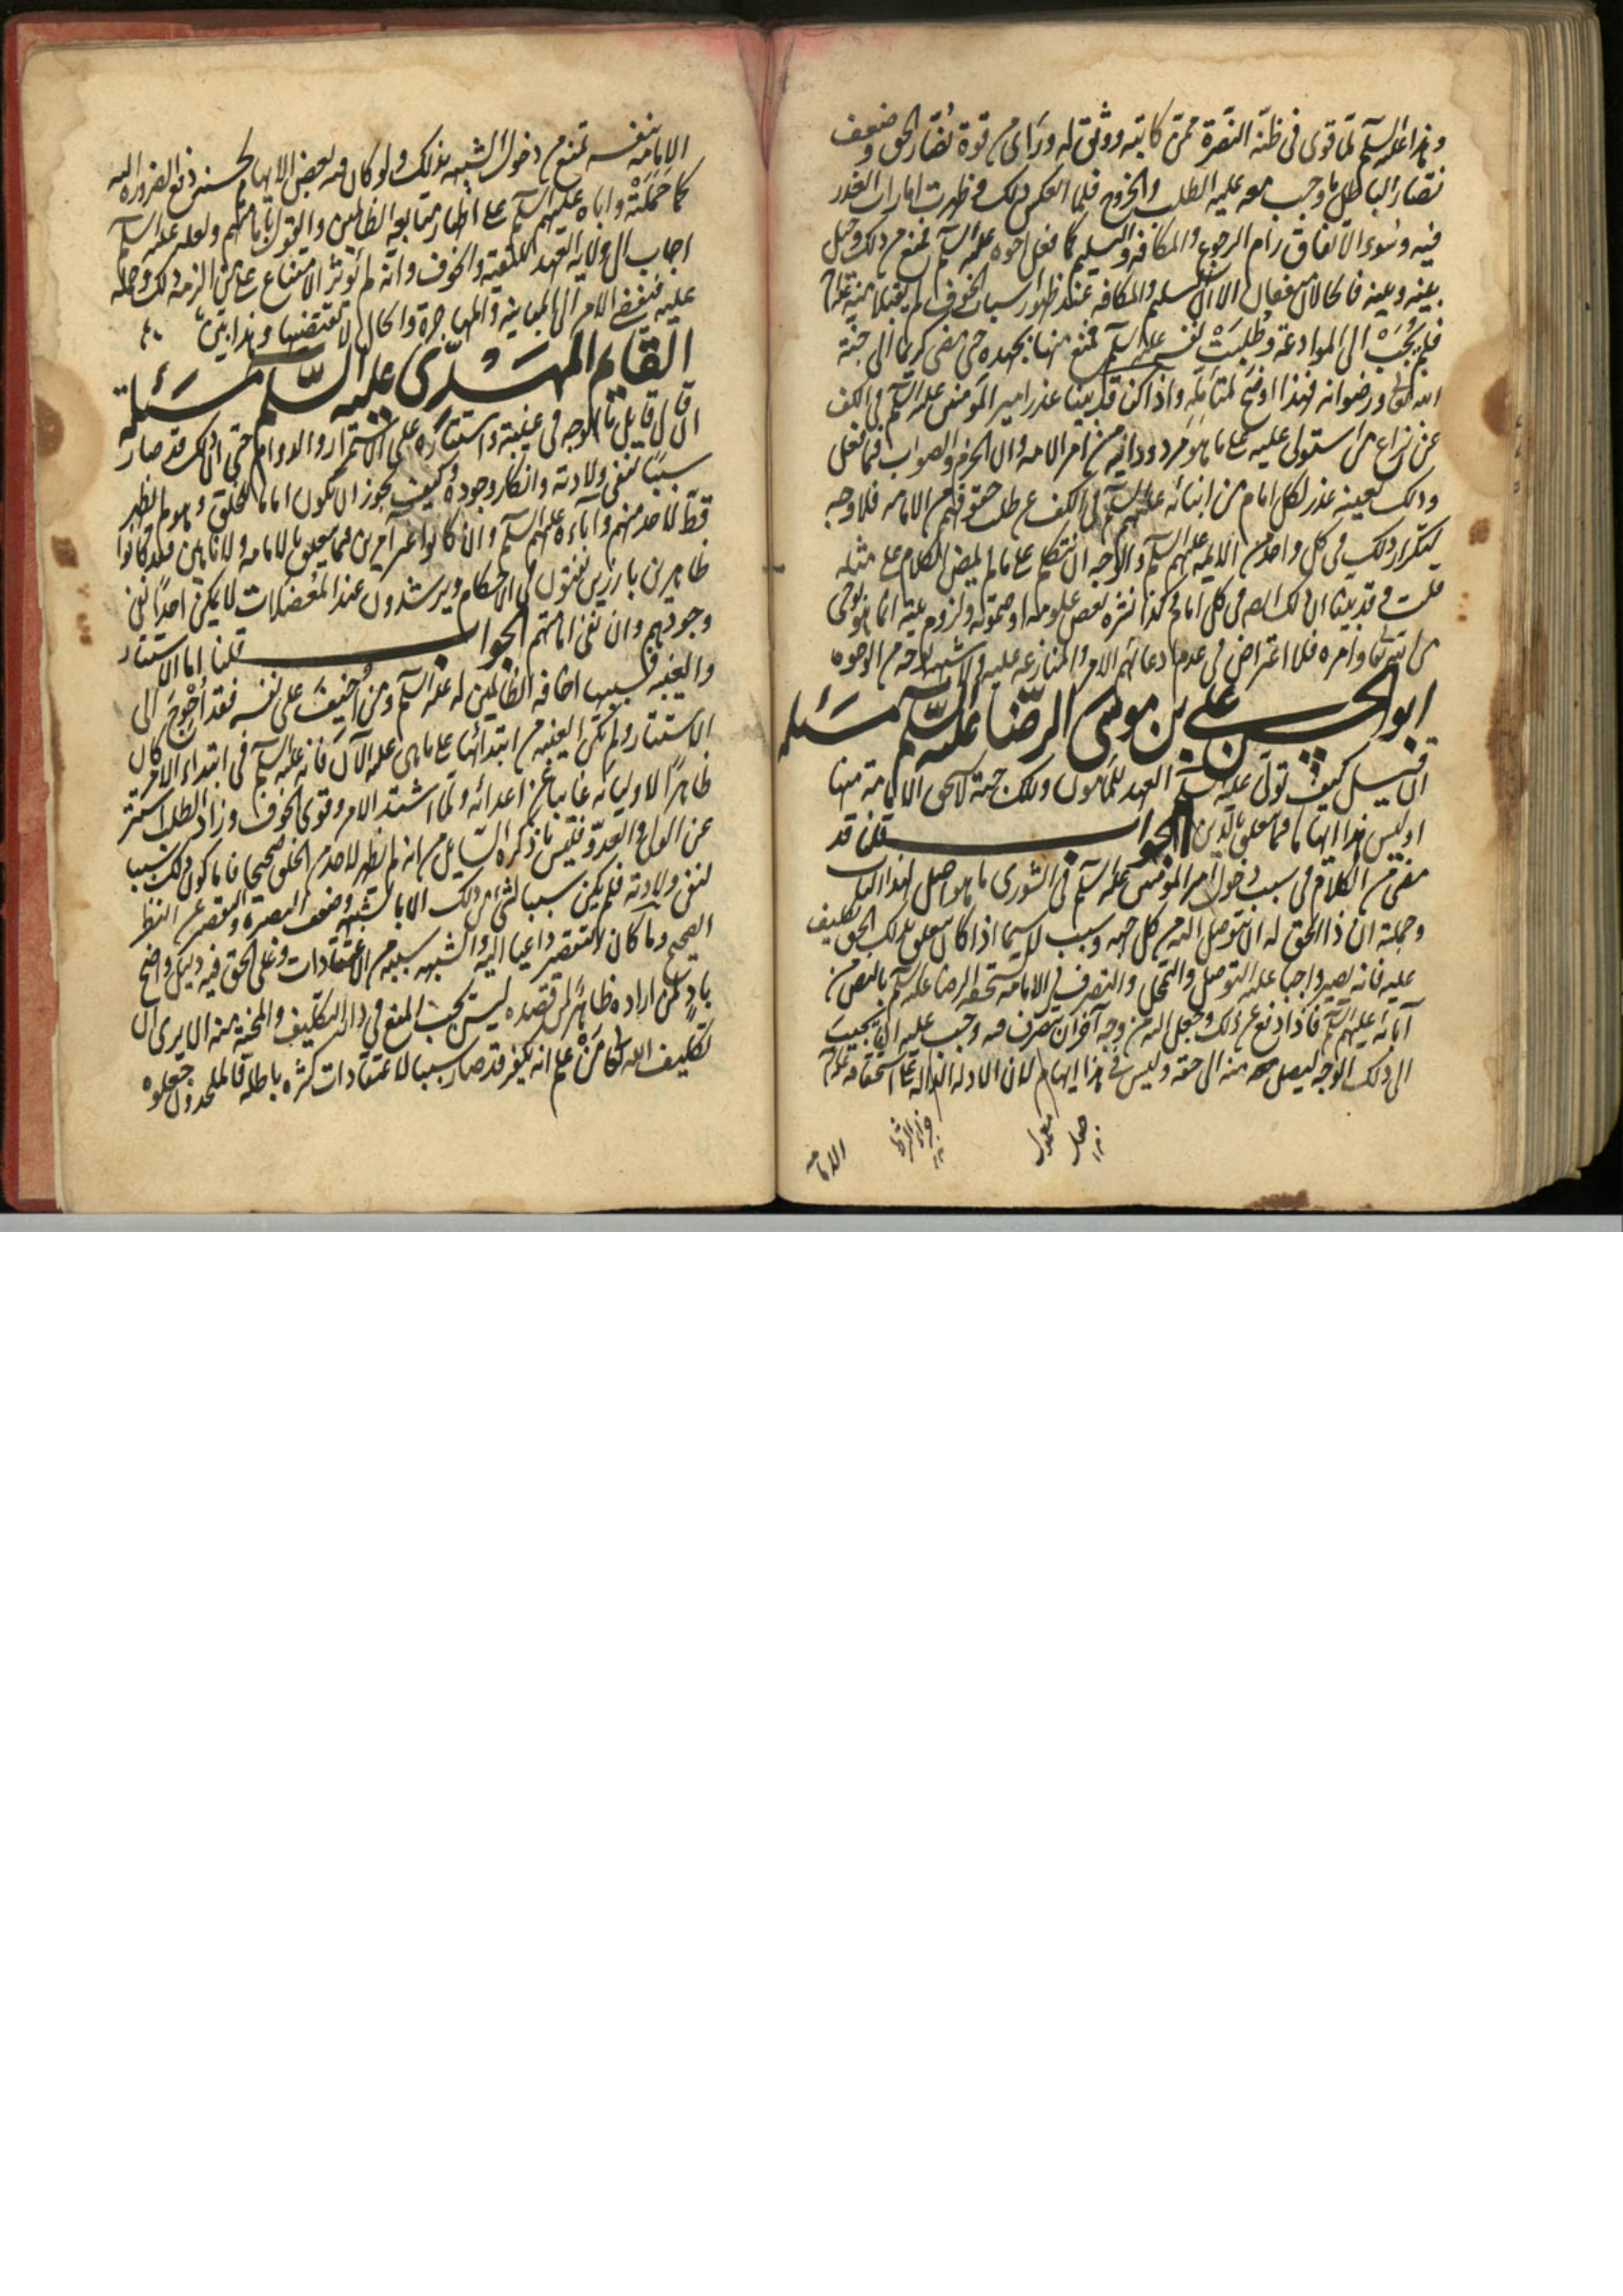 وهذا عليه السلم لما قوى فى ظنه النصرة ممن كاتبه ووثق له وراى من قوة نصار الحق وضعف
نصار الباطل ما وجب معه عليه الطلب والخروج فلما انعكس ذلك وظهرت امارات الغدر
فيه وسوء الاتفاق رام الرجوع والمكافه والتسليم كما فعل اخوه عليه السلم فمنع من ذلك وحيل
بينه وبينه فالحالان متفقان الا ان التسليم والمكافه عند ظهور اسباب الخوف لم يقبلا منه عليه السلم
فلم يُجَبْ الى الموادعة وطُلِبَتْ نفسه عليه السلم فمنع منها بجهده حتى مضى كريما الى جنة
الله تعالى ورضوانه فهذا اوضح لمتأمله واذا كنا قد بينا عذر امير المومنين عليه السلم فى الكف
عن نزاع من استولى عليه على ما هو مردود اليه من امر الامه وان الحزم والصواب فيما فعل
وذلك بعينه عذر لكل امام من ابنائه عليهم السلم فى الكف عن طلب حقوقهم من الامامه فلا وجه
لتكرار ذلك فى كل واحد من الائمه عليهم السلم والوجه ان نتكلم على ما لم يمض الكلام على مثله
من الله تعالى وامره فلا اعتراض فى عدم ادعائهم الامر والمنازعه عليه ولا شبهه بوجه من الوجوه
ابو الحسن على بن موسى الرضا عليه السلم مسئله
ان قيل كيف تولى عليه السلم العهد للمامون وتلك جهة لا يستحق الامامة منها
اوليس هذا ايهاما فيما يتعلق بالدين الجواب قلنا قد
مضى من الكلام فى سبب دخول امير المومنين عليه السلم فى الشورى ما هو اصل لهذا الباب
وجملته ان ذا الحق له ان يتوصل اليه من كل جهه وسبب لا سيما اذا كان يتعلق بذلك الحق تكليف
عليه فانه يصير واجبا عليه التوصل والتحمل والتصرف فى الامامه يستحقه الرضا عليه السلم بالنص من
آبائه عليهم السلم فاذا دفع عن ذلك وجعل اليه من وجه آخر ان يتصرف فيه وجب عليه ان يجيب
الى ذلك الوجه ليصل منه الى حقه وليس فى هذا ايهام لان الادله الداله على استحقاقه عليه السلم
الامامه
الامامه بنفسه تمنع من دخول الشبهه بذلك ولو كان فيه بعض الايهام لحسنه دفع الضروره اليه
كما حَمَلَتْه واباه عليهم السلم على اظهار متابعه الظالمين والقول بامامتهم ولعله عليه السلم
اجاب الى ولايه العهد للتقيه والخوف وانه لم يؤثر الامتناع على من الزمه ذلك وحمله
عليه فيفضى الامر الى المباينه والمهاجرة والحال لا تقتضيها وهذا بين
القايم المهدى عليه السلم مسئلة
ان قال قايل ما الوجه فى غيبته واستتاره على الاستمرار والدوام حتى ان ذلك قد صار
سببا لنفى ولادته وانكار وجوده وكيف يجوز ان تكون اماما للخلق وهو لم يظهر
قط لاحد منهم وآباءه عليهم السلم وان كانوا غير آمرين فيما يتعلق بالامامه ولا ناهين فقد كانوا
ظاهرين بارزين يفتون فى الاحكام ويرشدون عند المعضلات لا يمكن احدا نفى
وجودهم وان نفى امامتهم الجواب قلنا اما الاستتار
والغيبه فسببها اخافه الظالمين له عليه السلم ومن اخيف على نفسه فقد أحوج الى
الاستتار ولم تكن الغيبه من ابتدائها على ما هى عليه الآن فانه عليه السلم فى ابتداء الامر كان
ظاهرا لاوليائه غايبا عن اعدائه ولما اشتد الامر وقوى الخوف وزاد الطلب استتر
عن الولى والعدو فليس ما ذكره السايل من انه لم يظهر لاحد من الخلق صحيحا فاما كون ذلك سببا
لنفى ولادته فلم يكن سببا لشئ من ذلك الا بالشبهه وضعف البصيرة والتقصير عن النظر
الصحيح وما كان التقصير داعيا اليه والشبهه سببه من الاعتقادات وعلى الحق فيه دليل واضح
بادٍ لمن اراده ظاهر لمن قصده ليس يجب المنع فى دار التكليف والمحنة منه الا يرى ان
تكليف الله تعالى من علم انه يكفر قد صار سببا لاعتقادات كثيره باطله فالملحدون جعلوه